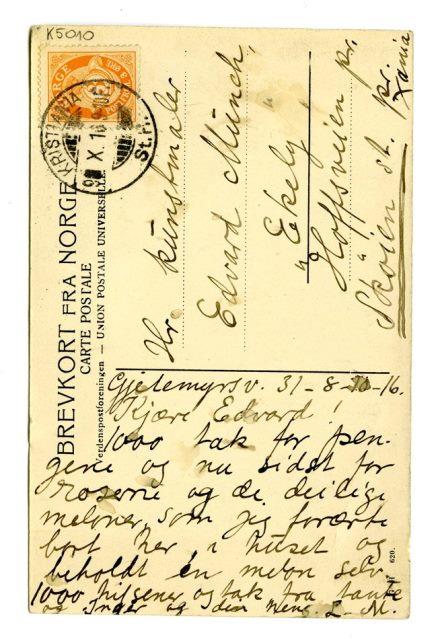 K5010
NORGE
KRISTIANIA
9 X.16
St.P.
BREVKORT FRA NORGE
CARTE POSTALE
Verdenspostforeningen – UNION POSTALE UNIVERSELLE
Hr. Kunstmaler
Edvard Munch,
"Ekely"
Hoffsveien pr.
Skøien st. pr.
Kania
Gjetemyrsv. 31 – 8 – 10 – 16.
Kjære Edvard!
1000 tak for pen-
gene og nu sidst for
roserne og de deilige
meloner, som jeg forærte
bort her i huset og
beholdt en melon selv
1000 hilsener og tak fra tante
og Inger og din heng. L. M.
620.